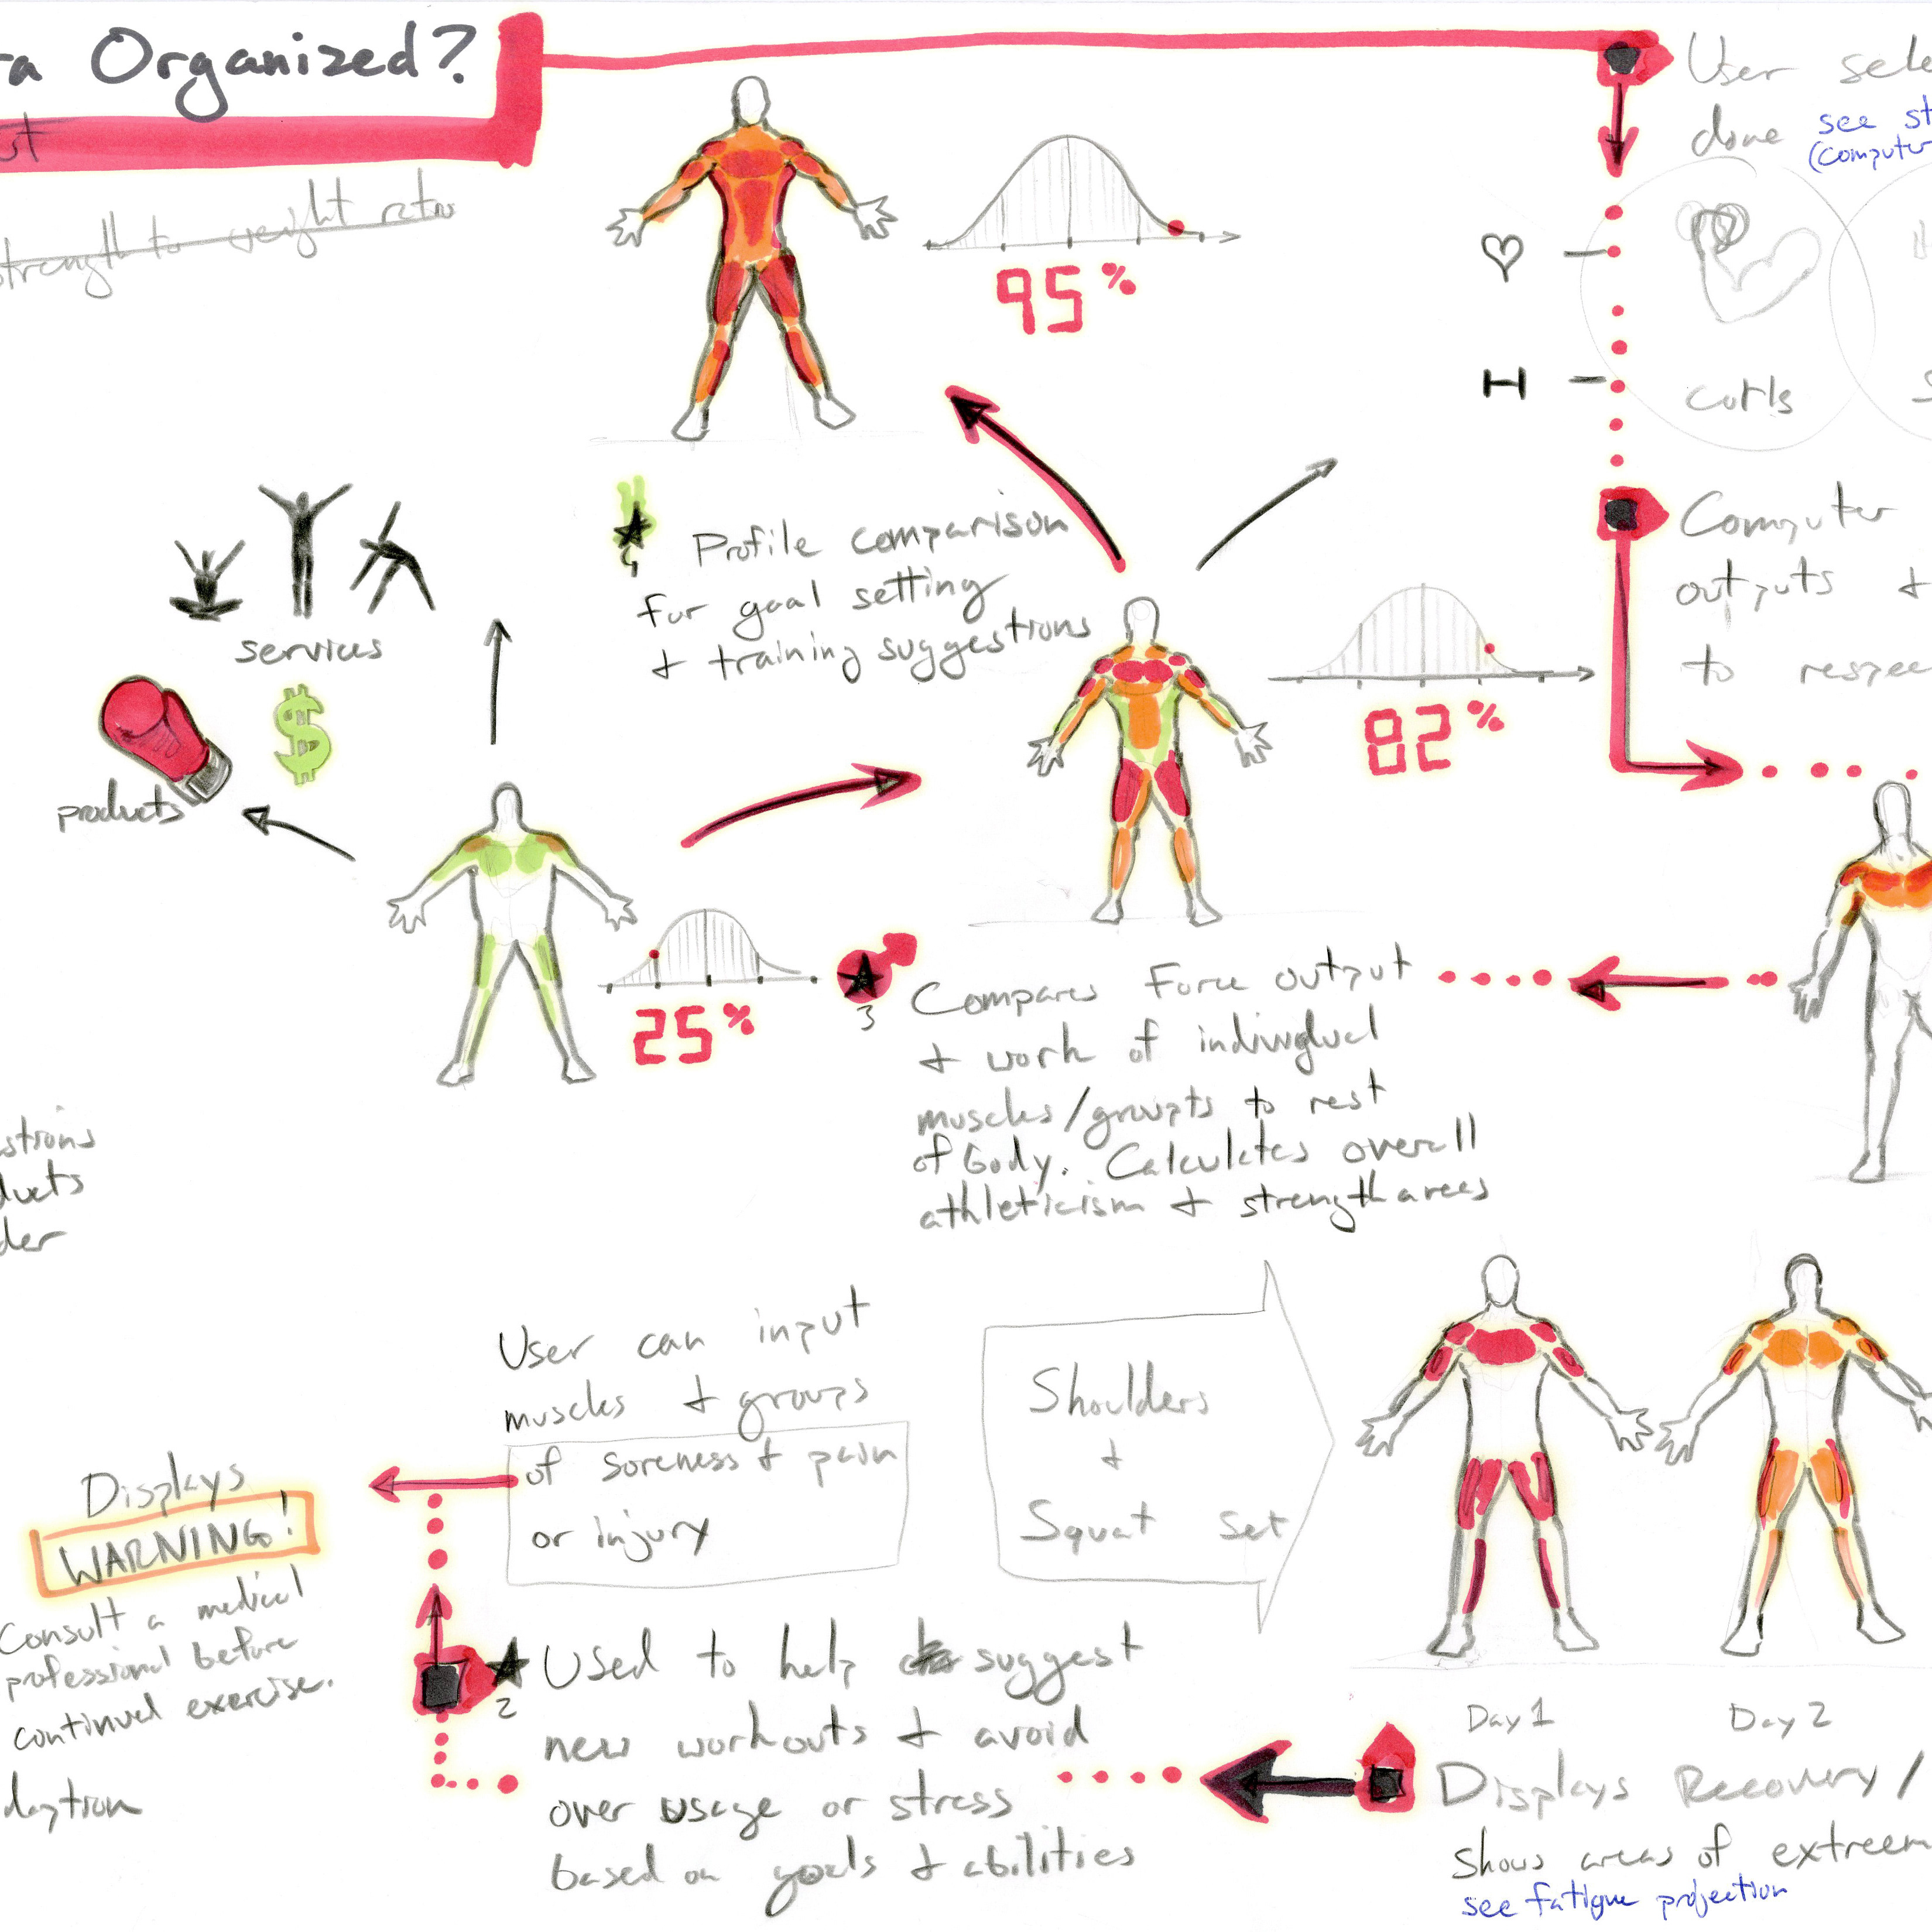 Organized?
strength to weight ratio
User
done see
(computer
curls
95%
Computer
outputs +
to
services
products
$
4 Profile comparison
for goal setting
+ training suggestions
82%
25%
3
Compares Force output
+ work of individual
muscles/groups to rest
of body. Calculates overall
athleticism + strength areas
User can input
muscles + groups
of soreness + pain
or injury
Shoulders
+
Squat set
Displays
WARNING!
Consult a medical
professional before
continued exercise.
2
Used to help suggest
new workouts + avoid
over usage or stress
based on goals + abilities
Day 1
Day 2
Displays Recovery/
Shows areas of extreem
see fatigue projection